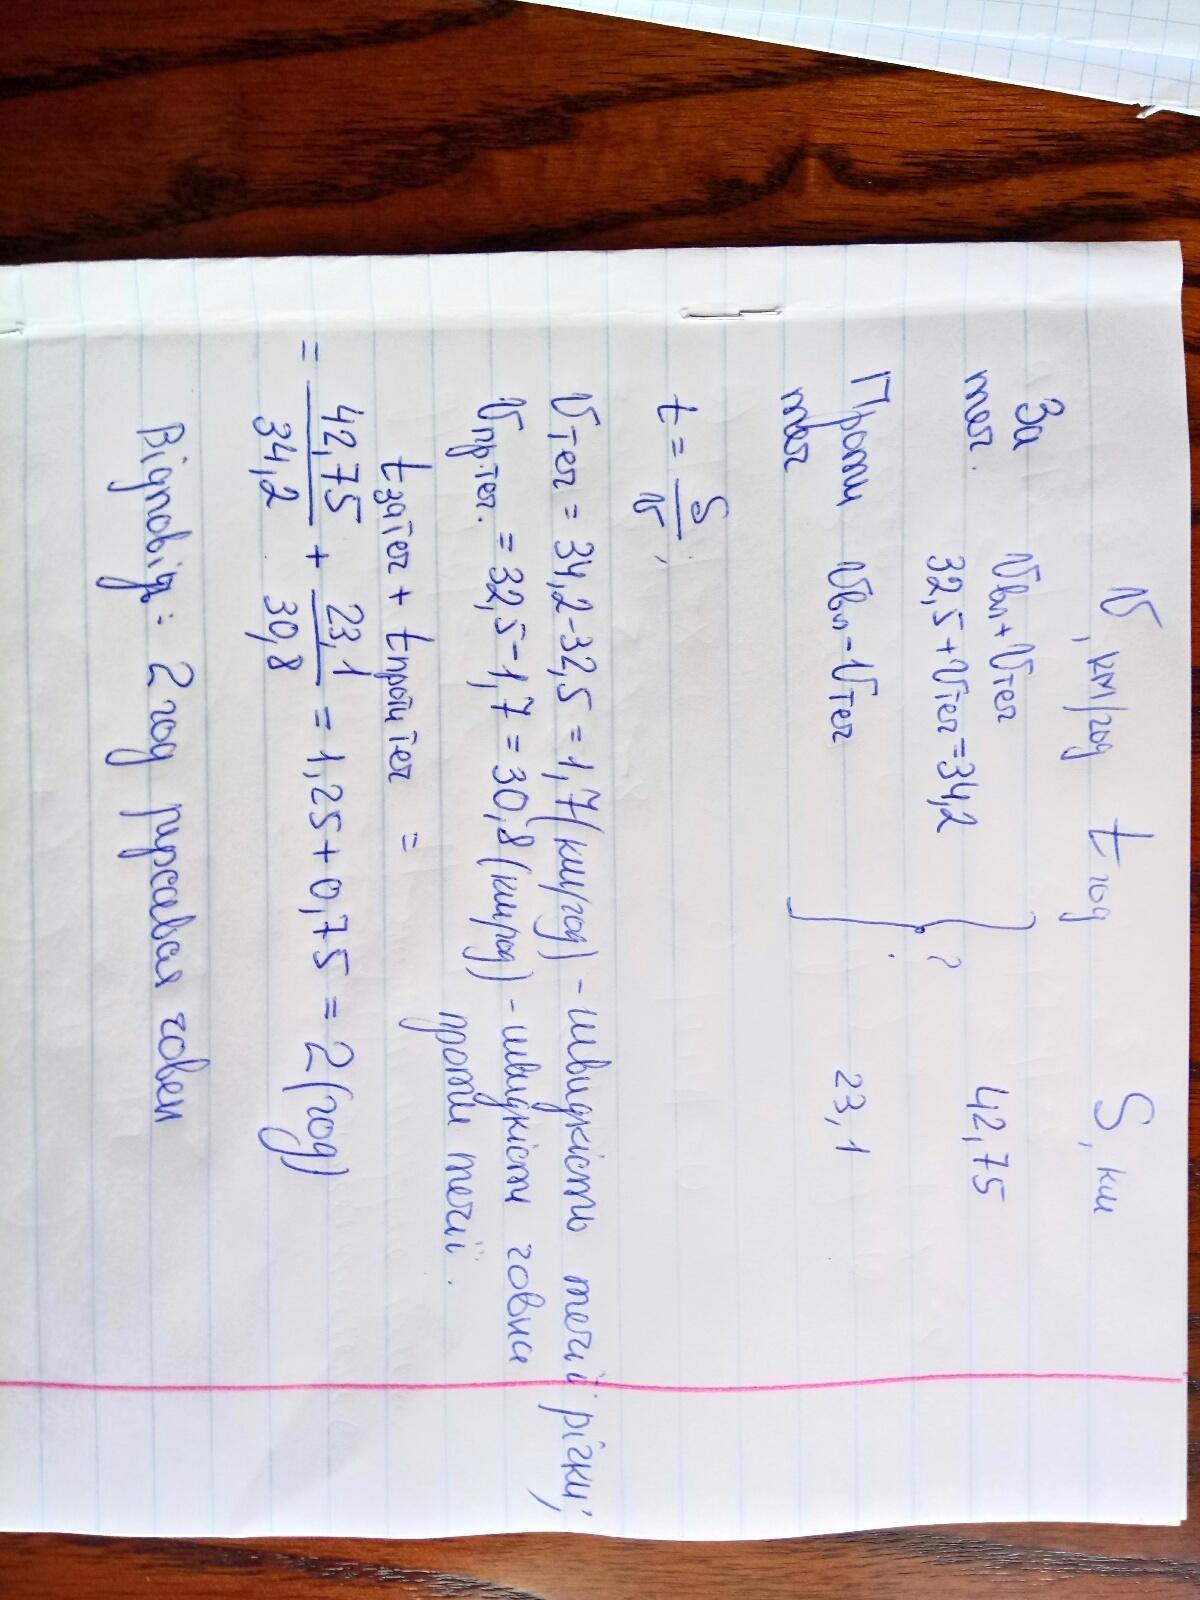 V, км/год t год S, км
За Vвл+Vтеч 42,75
теч. 32,5+Vтеч=34,2
?
Проти Vвл-Vтеч 23,1
теч
t = S/V;
Vтеч = 34,2-32,5 = 1,7(км/год) - швидкість течії річки;
Vпр.теч. = 32,5-1,7 = 30,8 (км/год) - швидкість човна
проти течії.
tза теч + tпроти теч =
= 42,75/34,2 + 23,1/30,8 = 1,25+0,75 = 2 (год)
Відповідь: 2 год човен